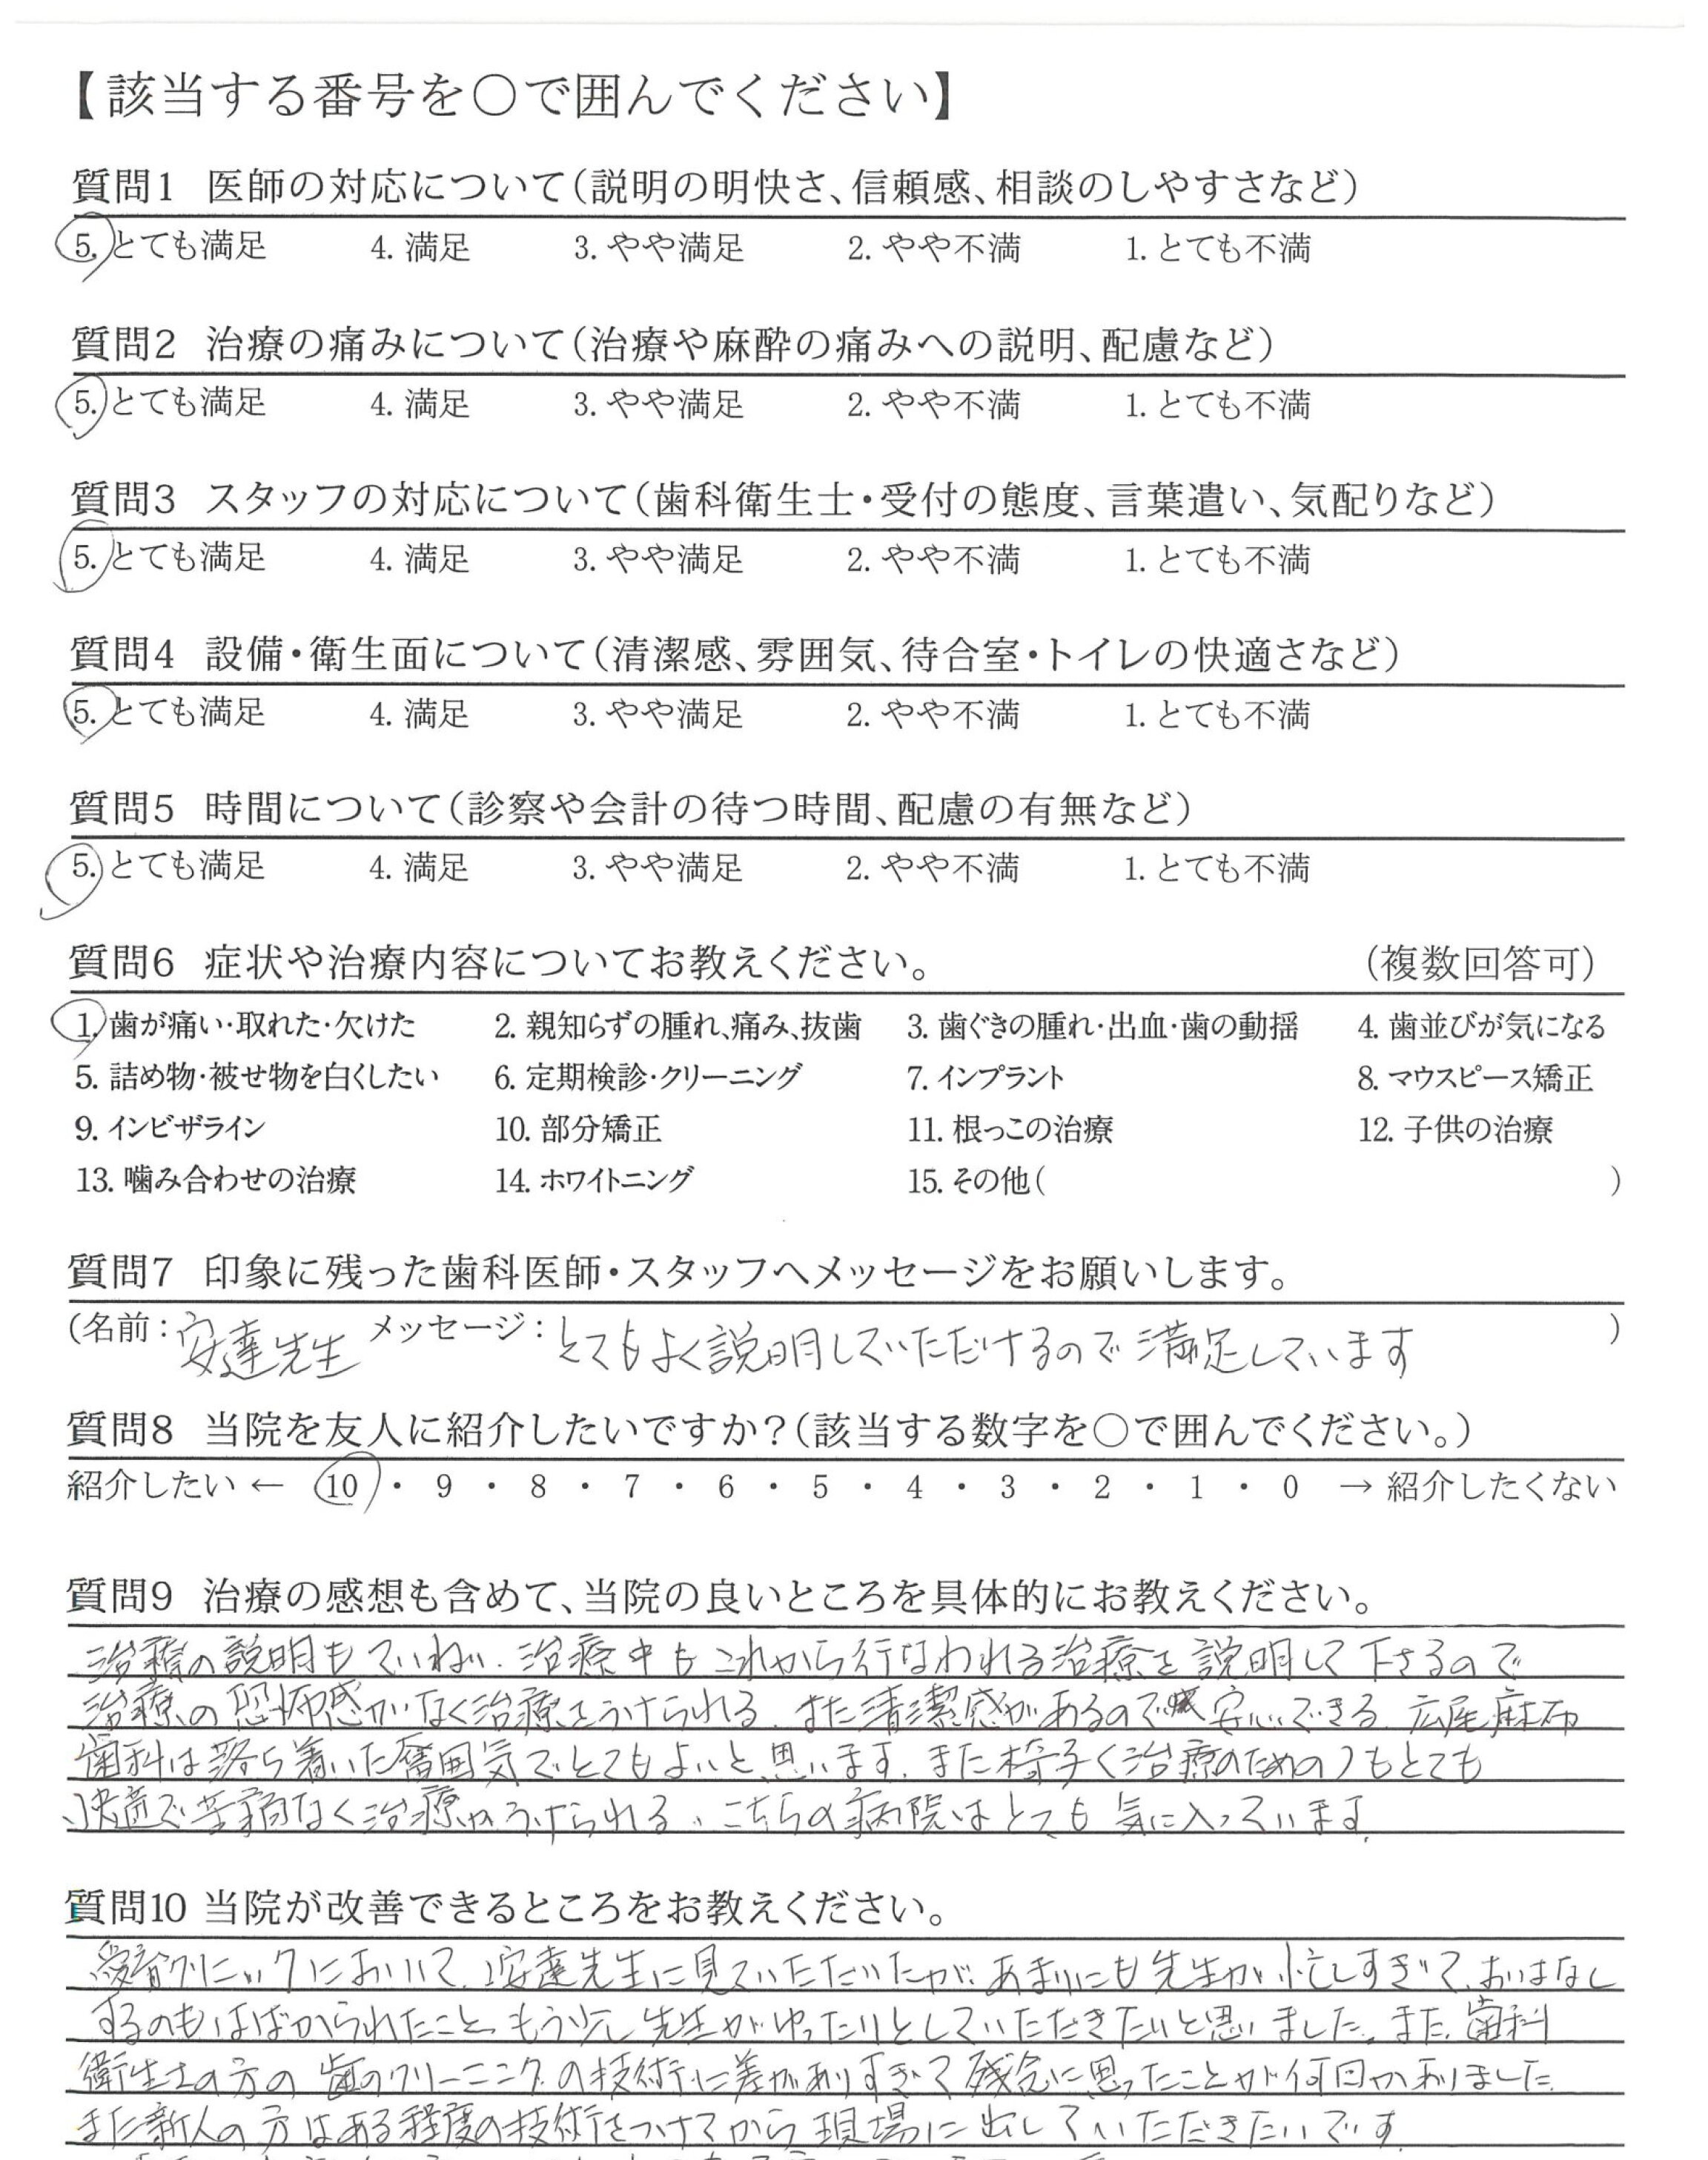 【該当する番号を〇で囲んでください】
質問1 医師の対応について（説明の明快さ、信頼感、相談のしやすさなど）
5. とても満足 4. 満足 3. やや満足 2. やや不満 1. とても不満
質問2 治療の痛みについて（治療や麻酔の痛みへの説明、配慮など）
5. とても満足 4. 満足 3. やや満足 2. やや不満 1. とても不満
質問3 スタッフの対応について（歯科衛生士・受付の態度、言葉遣い、気配りなど）
5. とても満足 4. 満足 3. やや満足 2. やや不満 1. とても不満
質問4 設備・衛生面について（清潔感、雰囲気、待合室・トイレの快適さなど）
5. とても満足 4. 満足 3. やや満足 2. やや不満 1. とても不満
質問5 時間について（診察や会計の待つ時間、配慮の有無など）
5. とても満足 4. 満足 3. やや満足 2. やや不満 1. とても不満
質問6 症状や治療内容についてお教えください。 （複数回答可）
1. 歯が痛い・取れた・欠けた 2. 親知らずの腫れ、痛み、抜歯 3. 歯ぐきの腫れ・出血・歯の動揺 4. 歯並びが気になる
5. 詰め物・被せ物を白くしたい 6. 定期検診・クリーニング 7. インプラント 8. マウスピース矯正
9. インビザライン 10. 部分矯正 11. 根っこの治療 12. 子供の治療
13. 噛み合わせの治療 14. ホワイトニング 15. その他（ ）
質問7 印象に残った歯科医師・スタッフへメッセージをお願いします。
（名前：安達先生 メッセージ：とてもよく説明していただけるので満足しています ）
質問8 当院を友人に紹介したいですか？（該当する数字を〇で囲んでください。）
紹介したい ← 10 ・ 9 ・ 8 ・ 7 ・ 6 ・ 5 ・ 4 ・ 3 ・ 2 ・ 1 ・ 0 → 紹介したくない
質問9 治療の感想も含めて、当院の良いところを具体的にお教えください。
治療の説明もていねい、治療中もこれから行なわれる治療を説明して下さるので
治療の恐怖感がなく治療をうけられる。また清潔感があるので安心できる。広尾麻布
歯科は落ち着いた雰囲気でとてもよいと思います。また椅子（治療のための）もとても
快適で苦痛なく治療がうけられる。こちらの病院はとても気に入っています。
質問10 当院が改善できるところをお教えください。
クリニックにおいて、安達先生に見ていただいたが、あまりにも先生が忙しすぎて、おはなし
するのもはばかられたこと。もう少し先生がゆったりとしていただきたいと思いました。また、歯科
衛生士の方の歯のクリーニングの技術に差がありすぎて残念に思ったことが何回かありました。
また新人の方はある程度の技術をつけてから現場に出していただきたいです。